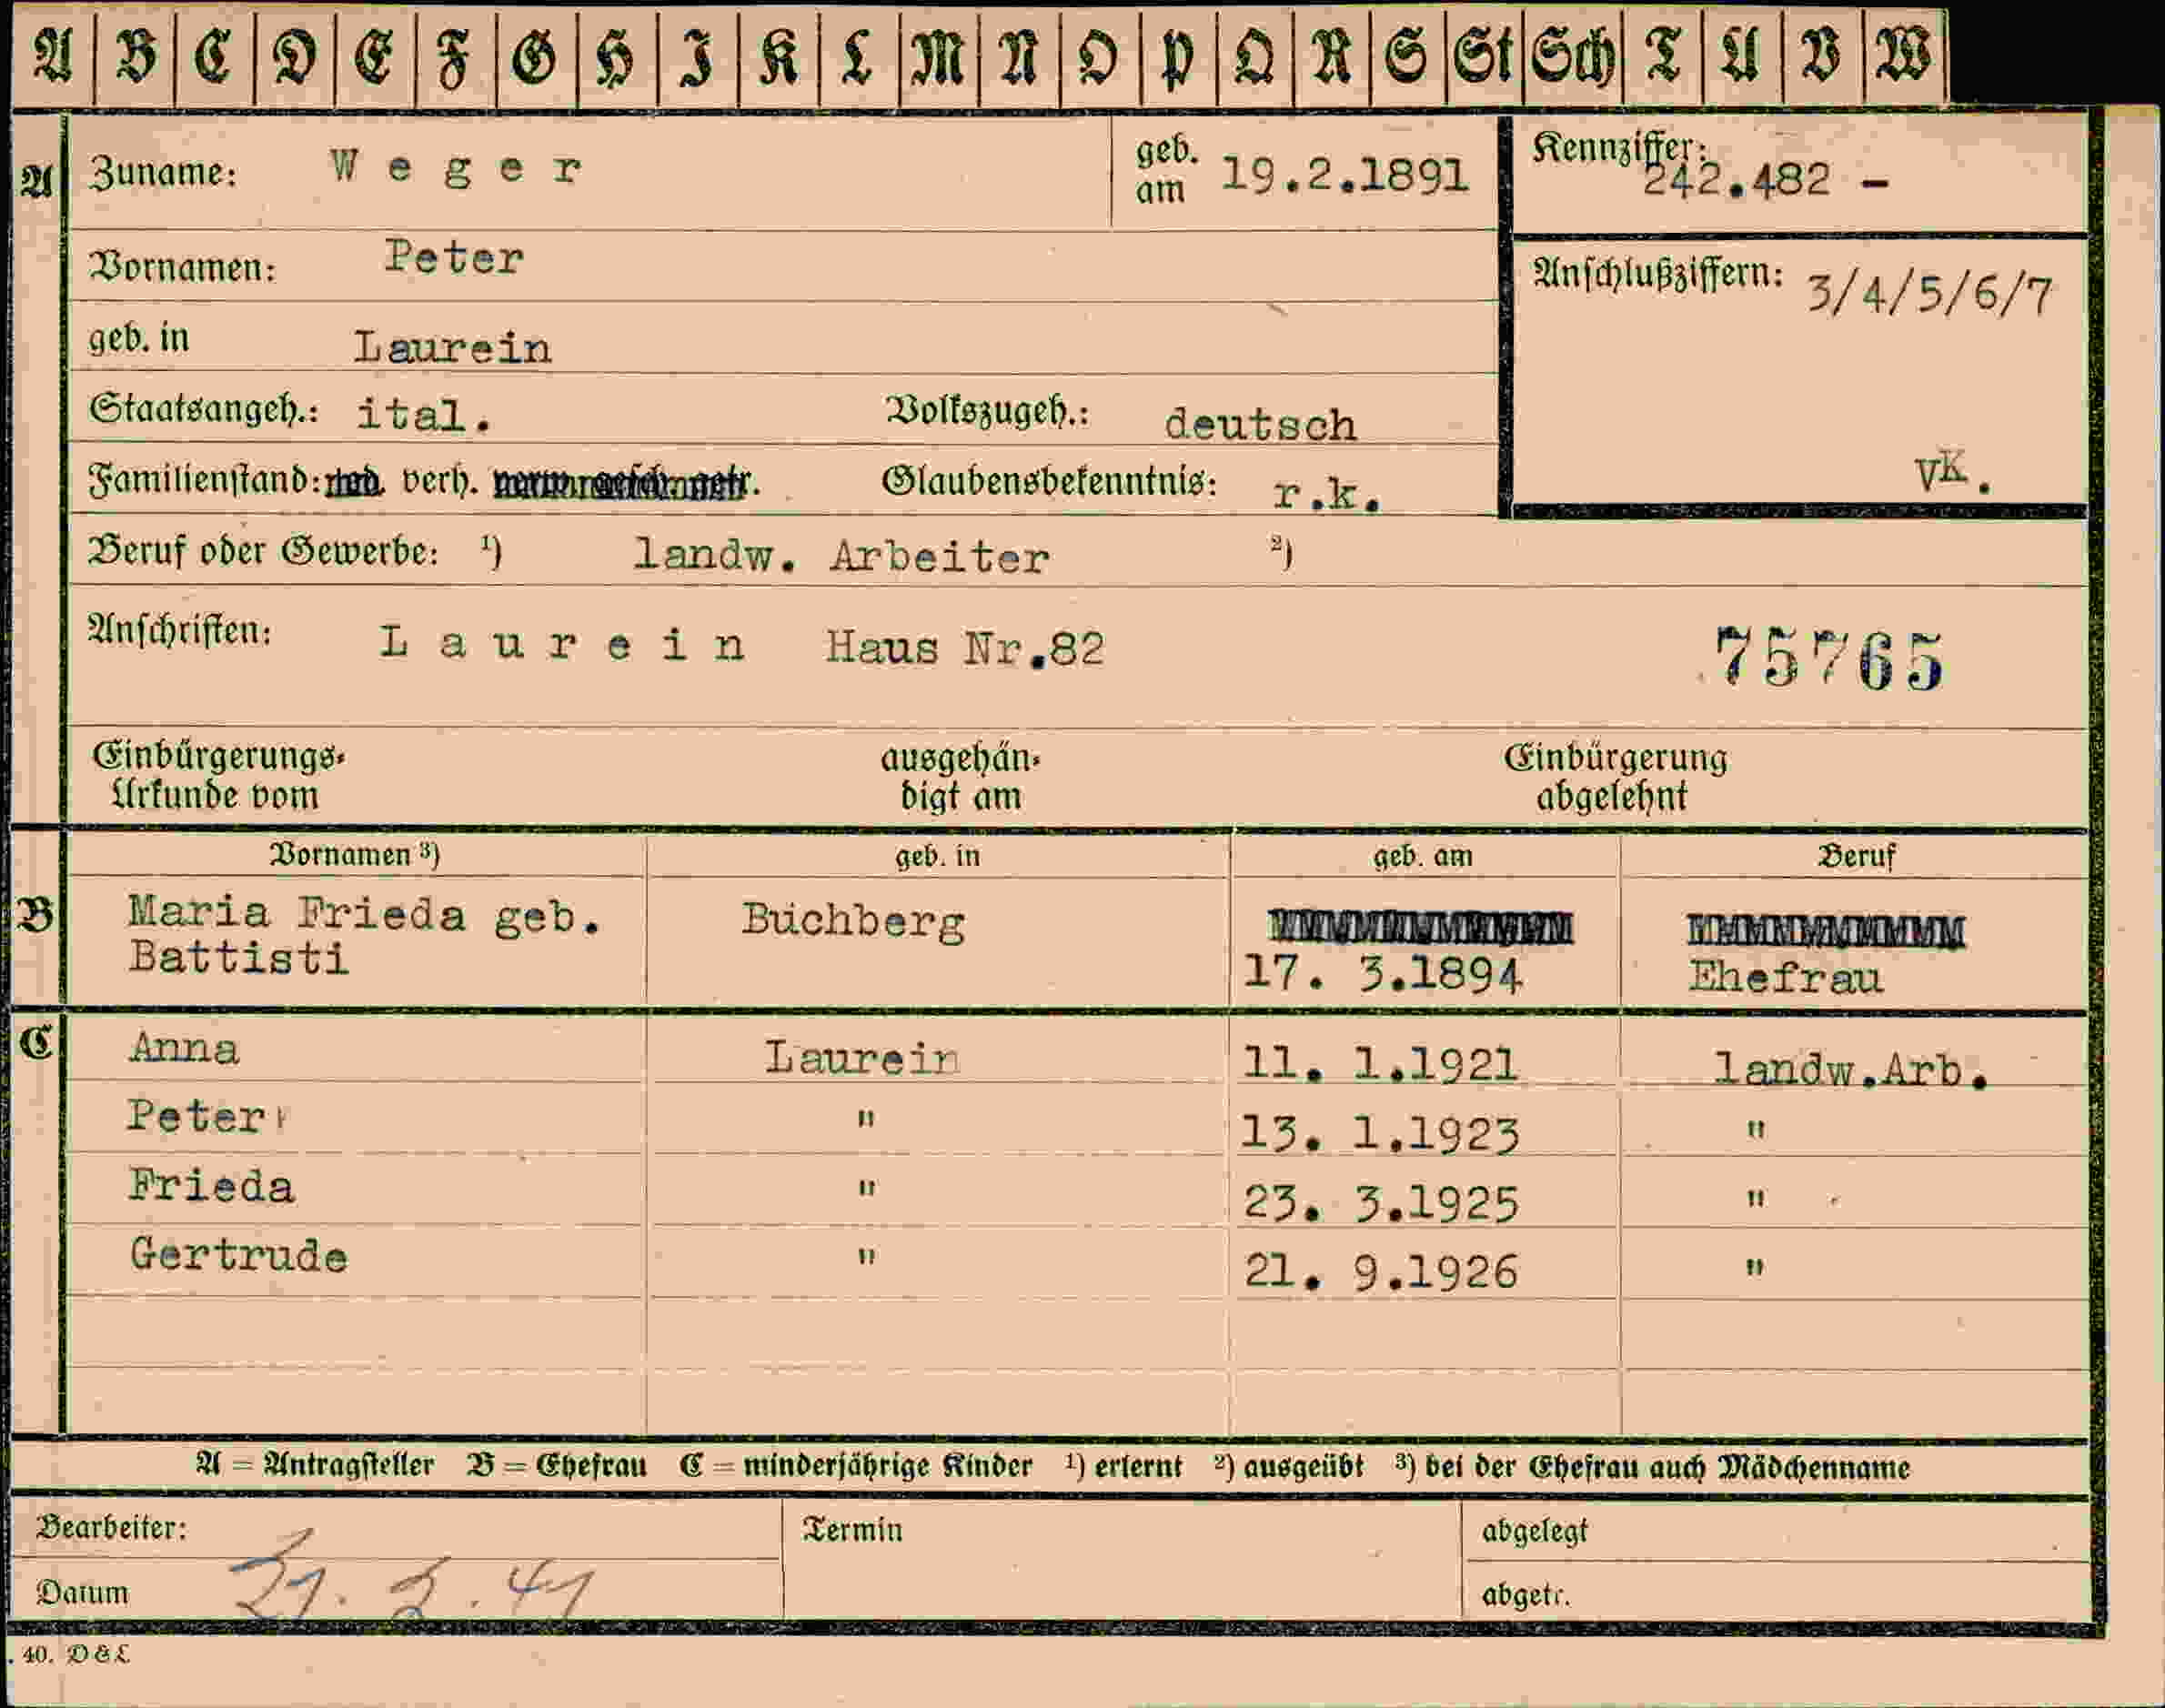 A B C D E F G H I K L M N O P Q R S St Sch T U V W
A Zuname: Weger geb. am 19.2.1891 Kennziffer: 242.482 -
Vornamen: Peter Anschlußziffern: 3/4/5/6/7
geb. in Laurein
Staatsangeh.: ital. Volkszugeh.: deutsch
Familienstand: verh. Glaubensbekenntnis: r.k. VK.
Beruf oder Gewerbe: ¹) landw. Arbeiter ²)
Anschriften: Laurein Haus Nr.82 75765
Einbürgerungs- ausgehän- Einbürgerung
Urkunde vom digt am abgelehnt
Vornamen ³) geb. in geb. am Beruf
B Maria Frieda geb. Buchberg
Battisti 17. 3.1894 Ehefrau
C Anna Laurein 11. 1.1921 landw.Arb.
Peter " 13. 1.1923 "
Frieda " 23. 3.1925 "
Gertrude " 21. 9.1926 "
A = Antragsteller B = Ehefrau C = minderjährige Kinder ¹) erlernt ²) ausgeübt ³) bei der Ehefrau auch Mädchenname
Bearbeiter: Termin abgelegt
Datum abgetr.
. 40. D & L